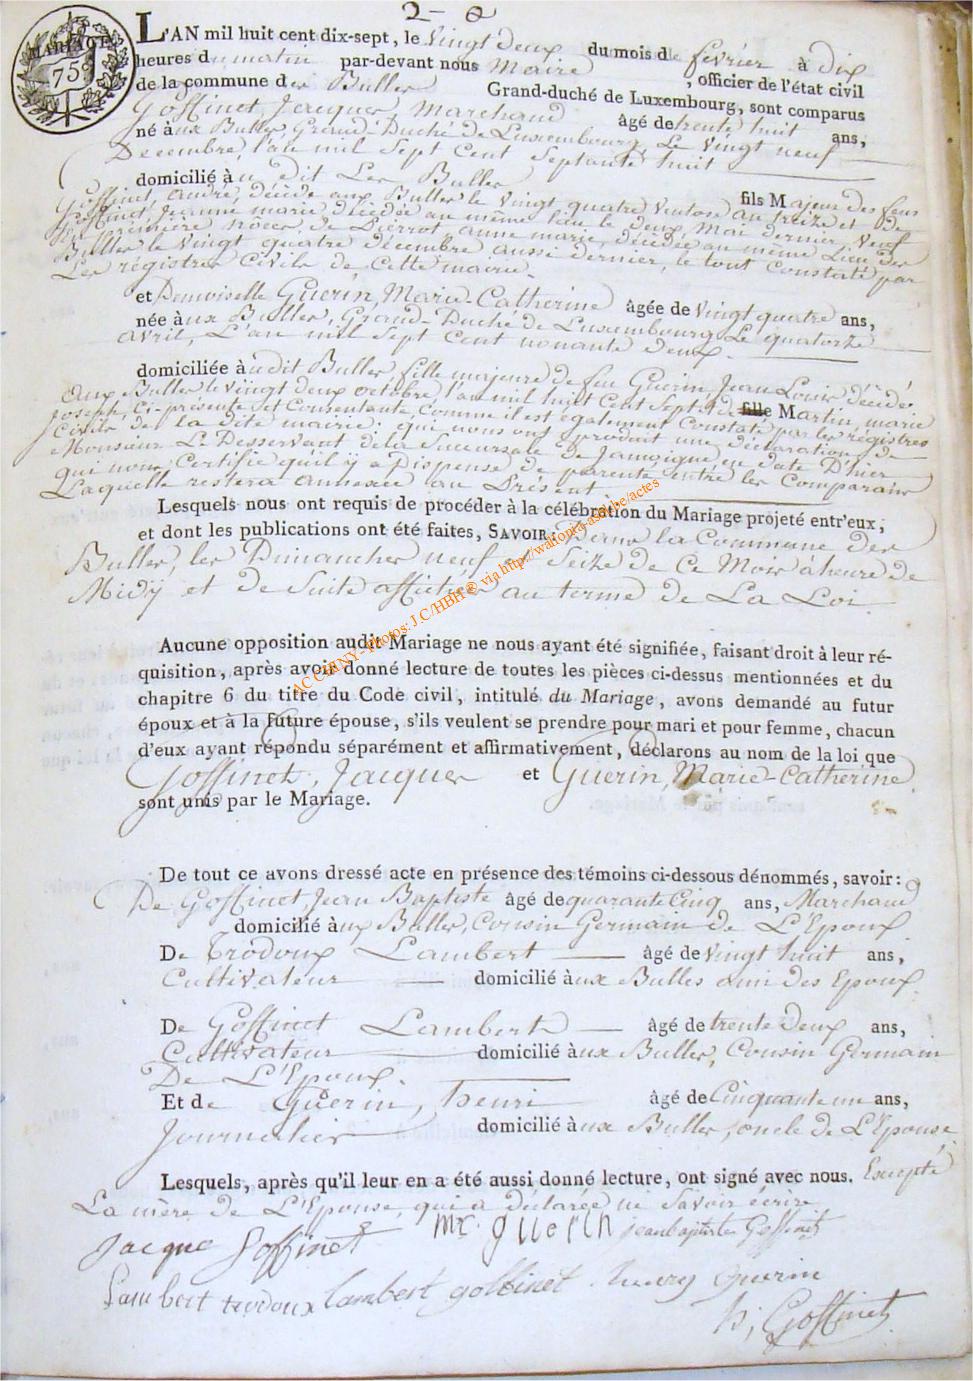 2 - a
MARIAGE
75 Cs
L'AN mil huit cent dix-sept, le Vingt deux du mois de février à dix
heures du matin par-devant nous Maire , officier de l'état civil
de la commune des Bulles Grand-duché de Luxembourg, sont comparus
Goffinet Jacques Marchand âgé de trente huit ans,
né à ux Bulles, Grand-Duché de Luxembourg, Le Vingt neuf
Decembre, l'an mil Sept Cent Septante huit
domicilié à u dit Les Bulles fils Majeur des feus
Goffinet, André, décédé aux Bulles le Vingt quatre Ventose an treize et de
Goffinet, Jeanne marie décédée au même lieu le deux Mai dernier, Veuf
en première noces de Pierrot, anne marie, décédée au même Lieu des
Bulles le Vingt quatre décembre aussi dernier, le tout Constaté par
Les régistres Civils de Cette mairie.
et Demoiselle Guerin, Marie-Catherine âgée de Vingt quatre ans,
née à ux Bulles, Grand-Duché de Luxembourg, Le quatorze
avril, L'an mil Sept Cent nonante deux.
domiciliée à udit Bulles fille majeure de feu Guerin, Jean Louis décédé
aux Bulles le Vingt deux octobre, l'an mil huit Cent Sept et de fille Martin, marie
Joseph, Ci-présente et Consentante, Comme il est également Constaté par les régistres
Civils de la dite mairie: qui nous ont produit une déclaration de
Monsieur Le Desservant de la Succursale de Jamoigne, en date D'hier
qui nous Certifie qu'il ÿ a Dispense de parenté entre les Comparans
Laquelle restera annexée au Présent
Lesquels nous ont requis de procéder à la célébration du Mariage projeté entr'eux,
et dont les publications ont été faites, SAVOIR: Dans la Commune des
Bulles, les Dimanches neuf et Seize de Ce Mois à heure de
Midÿ et de Suite affichées au terme de La Loi
Aucune opposition audit Mariage ne nous ayant été signifiée, faisant droit à leur ré-
quisition, après avoir donné lecture de toutes les pièces ci-dessus mentionnées et du
chapitre 6 du titre du Code civil, intitulé du Mariage, avons demandé au futur
époux et à la future épouse, s'ils veulent se prendre pour mari et pour femme, chacun
d'eux ayant répondu séparément et affirmativement, déclarons au nom de la loi que
Goffinet, Jacques et Guerin, Marie-Catherine
sont unis par le Mariage.
De tout ce avons dressé acte en présence des témoins ci-dessous dénommés, savoir:
De Goffinet, Jean Baptiste âgé de quarante Cinq ans, Marchand
domicilié à ux Bulles, Cousin Germain de L'Epoux
De Trodoux Lambert âgé de Vingt huit ans,
Cultivateur domicilié à ux Bulles ami des Epoux.
De Goffinet Lambert âgé de trente Deux ans,
Cultivateur domicilié à ux Bulles, Cousin Germain
De L'Epoux.
Et de Guerin, henri âgé de Cinquante un ans,
Journalier domicilié à ux Bulles, oncle de L'Epouse
Lesquels, après qu'il leur en a été aussi donné lecture, ont signé avec nous. Excepté
La mère de L'Epouse, qui a déclarée ne Savoir écrire
Jacque Goffinet mc. guerin jeanbaptiste Goffinet
Lambert trodoux lambert goffinet henry Guerin
h, Goffinet
ACCHINY - Photos: J.C/HBH @ via http://wallonia-asbl.be/actes